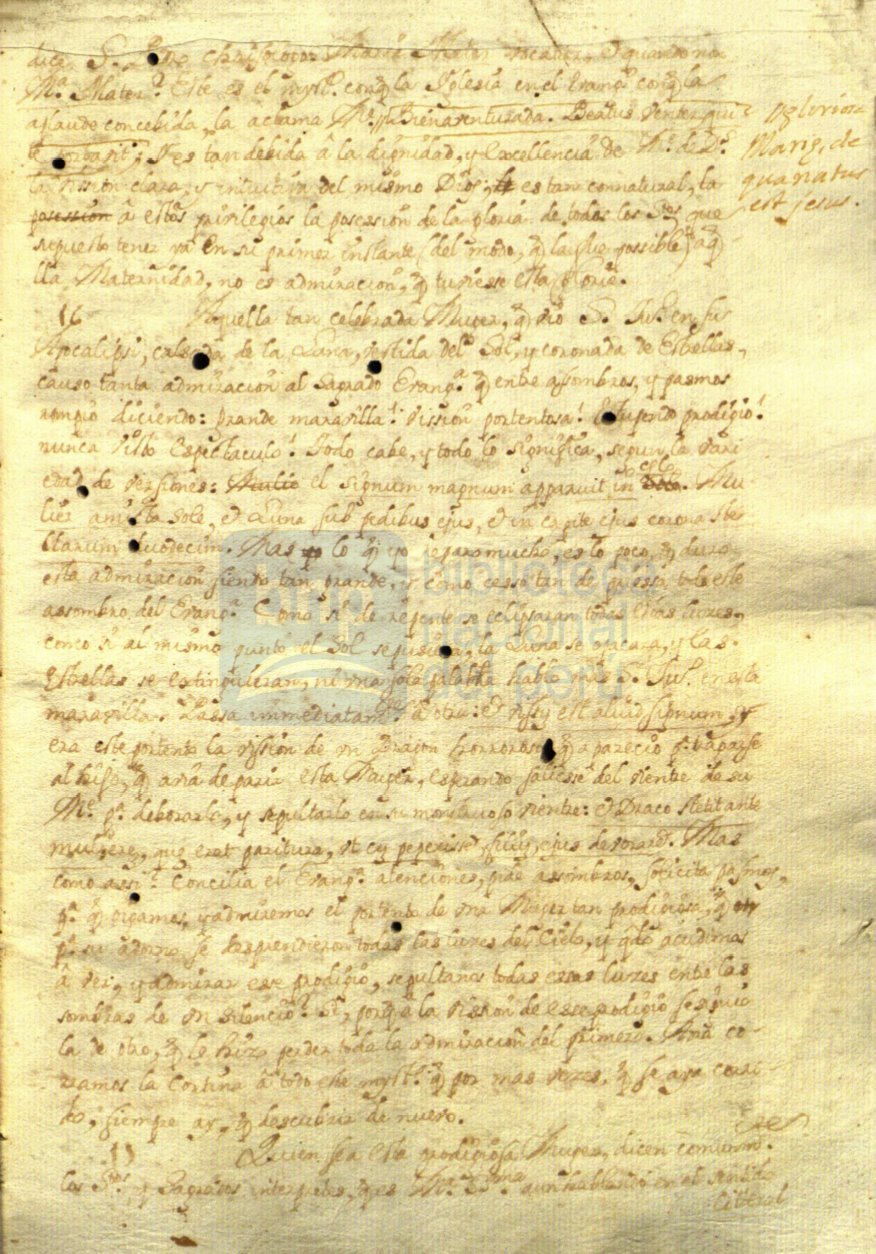 dice S. Chrisologo: Maria Mater vocatur, et quando non
Mª. Mater? Este es el myst.º con q̃ la Iglesia en el Evang.º con q̃ la
aplaude concebida, la aclama Mᵉ. y Bienaventurada. Beatus venter qui
te portavit; Y es tan debida â la dignidad, y Excellencia de Mᵉ. de Dˢ.
la vission clara, y intuitiva del mismo Dios, es tan connatural, la
possession â estos privilegios la possession de la gloria de todos los Sᵒˢ que
supuesto tener ya en su primer instante (del modo, q̃ la fue possible) aq̃
lla Maternidad, no es admiracion, q̃ tuviesse esta gloria.
Maria, de
qua natus
est Jesus.
16 Aquella tan celebrada Muger, q̃ vio S. Juº. en su
Apocalipsi, calsada de la Luna, vestida del Sol, y coronada de Estrellas,
causo tanta admiracion al Sagrado Evangᵃ. q̃ entre assombros, y pasmos
rompio diciendo: grande maravilla! vission portentosa! Estupendo prodigio!
nunca visto Espectaculo! Todo cabe, y todo lo significa, segun la vari
edad de versiones: el signum magnum apparuit in celo. Mu-
lier amicta sole, et Luna sub pedibus ejus, et in capite ejus corona ste-
llarum duodecim. Mas lo q̃ yo reparo mucho, es lo poco, q̃ duro
esta admiracion siendo tan grande, y como cesso tan de priessa todo este
assombro del Evangᵃ. Como si de repente se eclipsaran todas essas luces,
como si al mismo punto el Sol se pusiera, la Luna se opacara, y las
Estrellas se extinguieran, ni una sola palabra hablo mas S. Juº. en esta
maravilla. Passa immediatamᵗᵉ. â otra: et visum est aliud signum, y
era este portento la vission de un Dragon horroroso q̃ aparecio pᵃ. tragarse
al hijo, q̃ avia de parir esta Muger, esperando saliesse del vientre de su
Mᵉ. pᵃ. deborarlo, y sepultarlo en su monstruoso vientre: et Draco stetit ante
mulierem, que erat paritura, ut cum peperisset filium ejus devoraret. Mas
como assi? Concilia el Evangᵃ. atenciones, pide assombros, solicita pasmos,
pᵃ. q̃ oigamos, y admiremos el portento de una Muger tan prodigiosa, q̃
pᵃ. su adorno se desprendieron todas las luces del Cielo, y qdo. acudimos
â ver, y admirar ese prodigio, sepultanos todas essas luces entre las
sombras de un silencio? Si, porq̃ â la vission de ese prodigio se siguio
la de otro, q̃ le hizo perder toda la admiracion del primero. Aora co-
rramos la Cortina â todo este myst.º q̃ por mas vezes, q̃ se aya corri-
do, siempre ay, q̃ descubrir de nuevo.
17 Quien sea esta prodigiosa Muger, dicen comunm.
los Sᵗᵒˢ y Sagrados interpretes, q̃ es Mᵃ. SSᵐᵃ aun hablando en el sentido
litteral
biblioteca
nacional
del perú